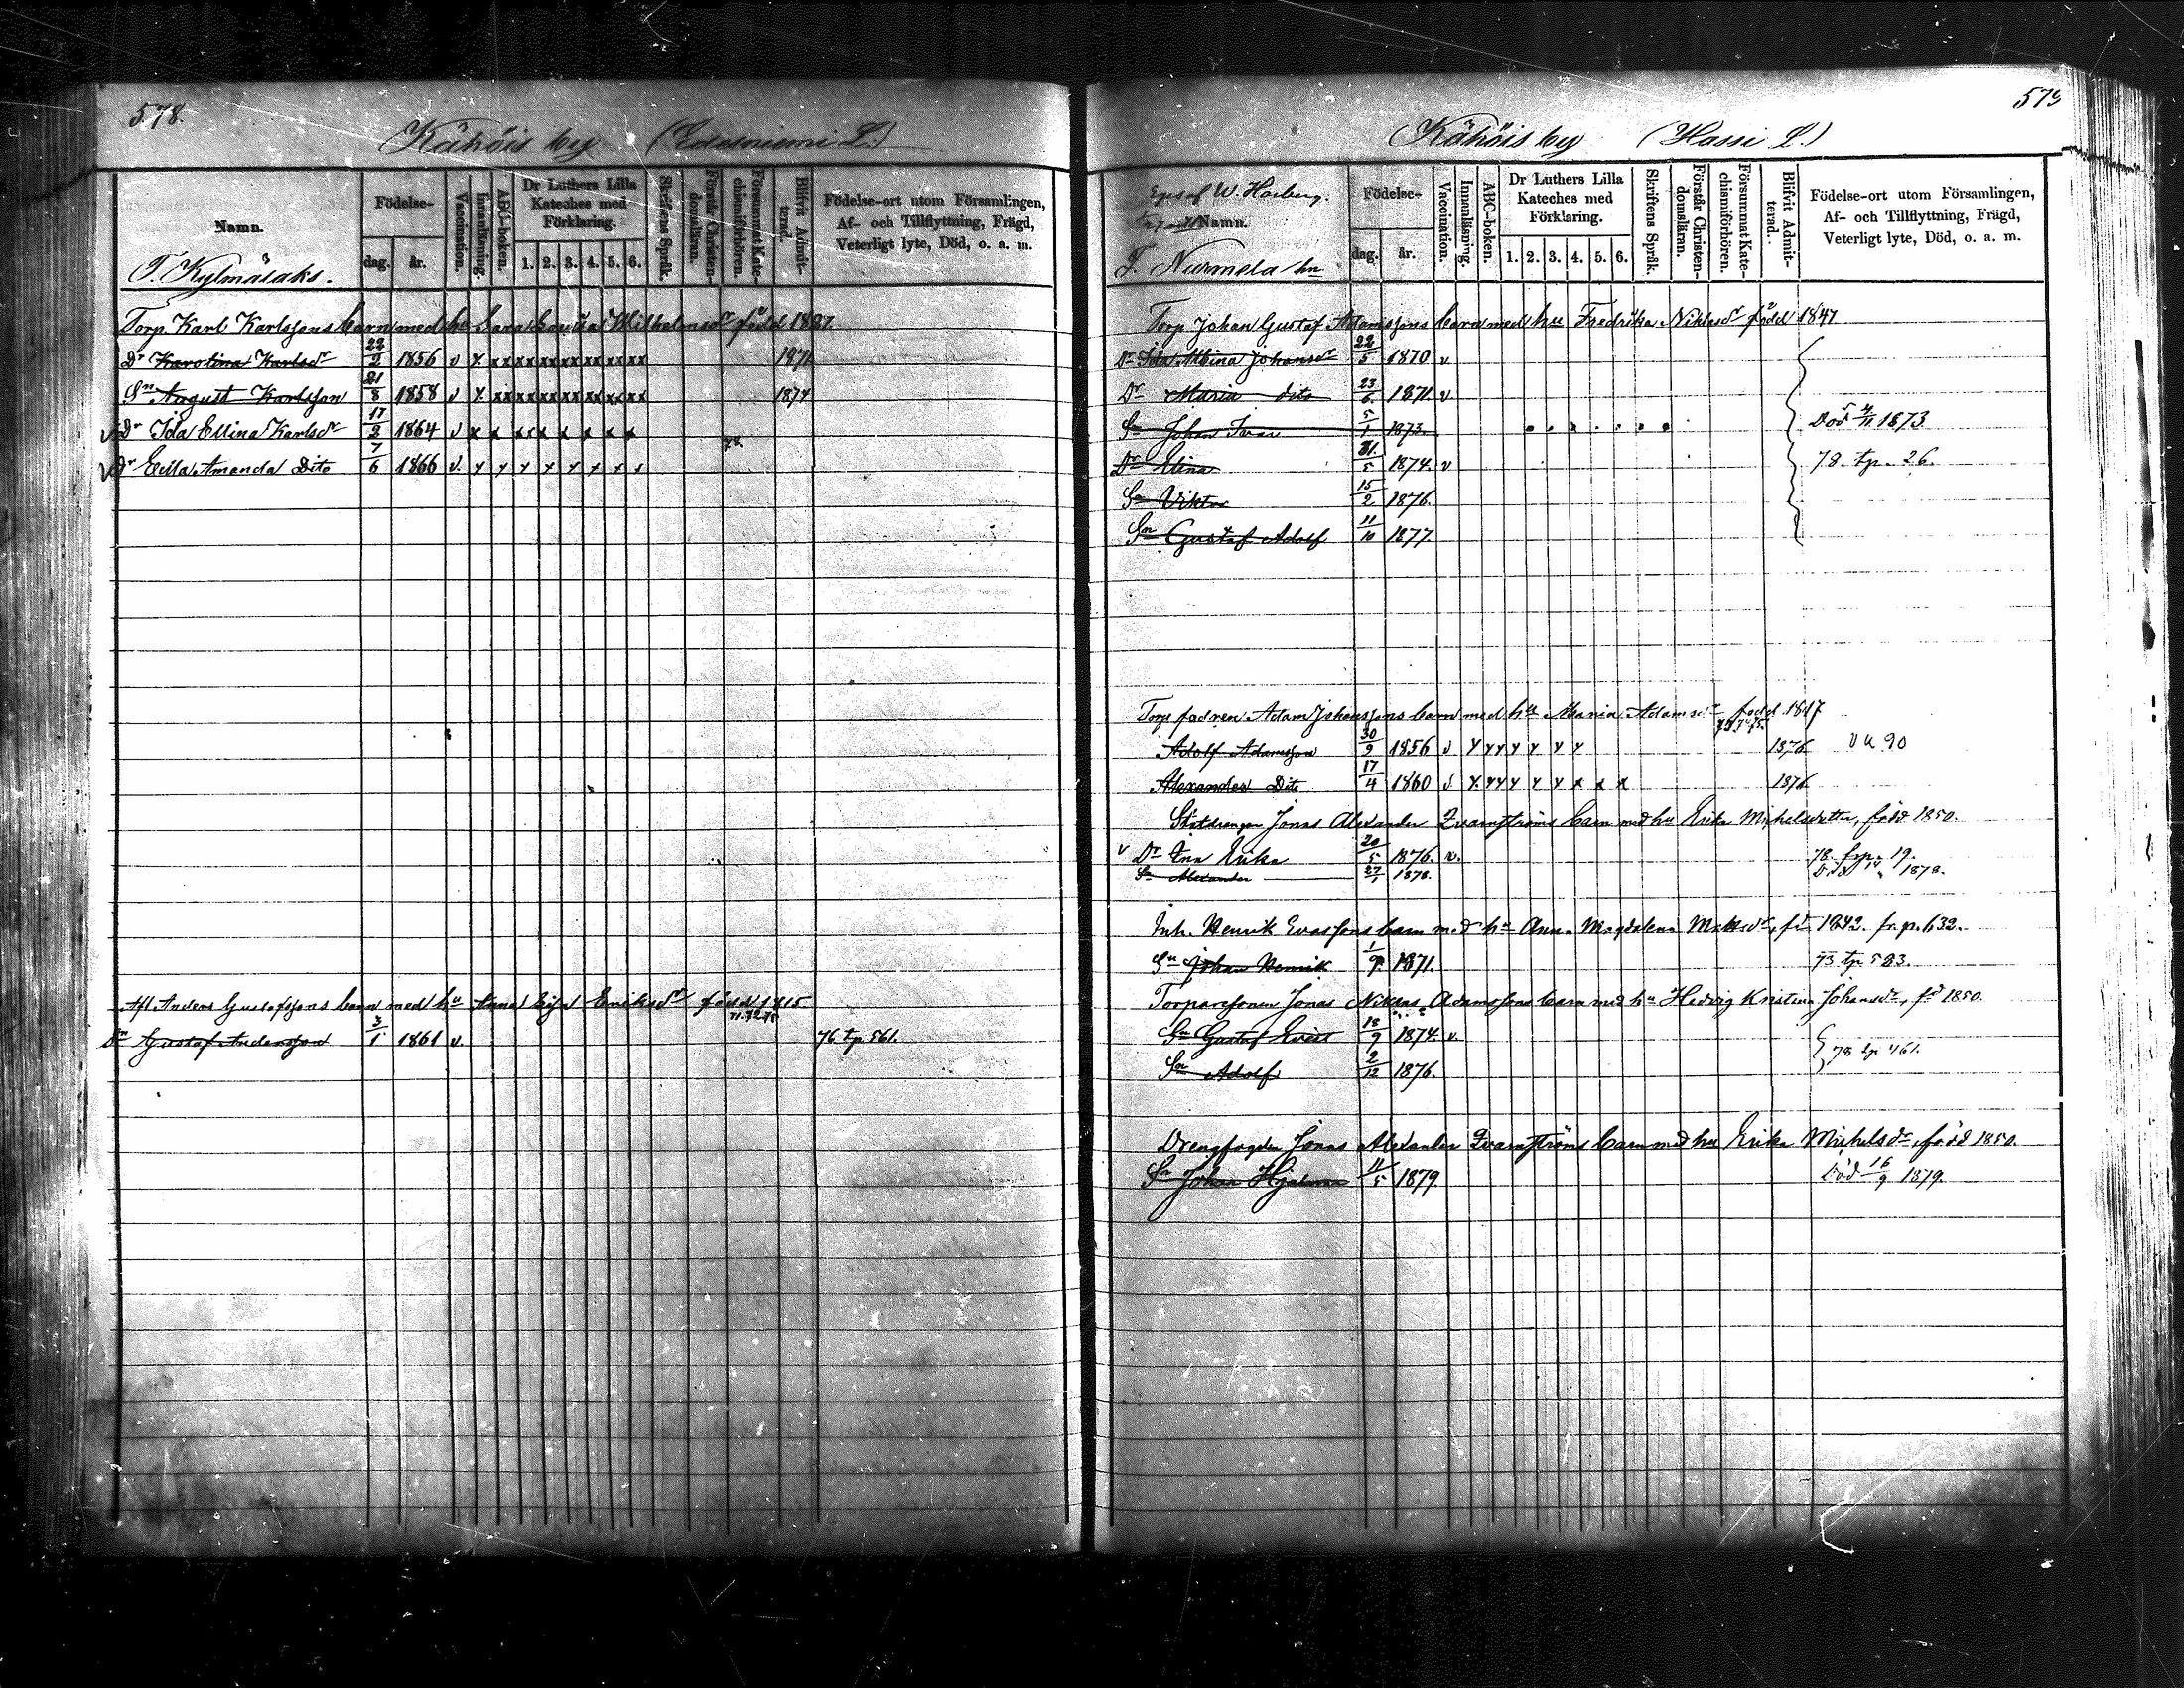 578.
Kähöis by (Edesniemi L.)
Namn.
Födelse-
dag.
år.
Vaccination.
Innanläsning.
ABC-boken.
Dr Luthers Lilla Kateches med Förklaring.
1. 2. 3. 4. 5. 6.
Skriftens Språk.
Förstår Christendomsläran.
Försummat Katechismiförhören.
Blifvit Admitterad.
Födelse-ort utom Församlingen, Af- och Tillflyttning, Frägd, Veterligt lyte, Död, o. a. m.
T. Kylmäsaks.
Torp. Karl Karlssons barn med hu Sara Lovisa Wilhelmsdr född 1827.
Dr Karolina Karlsdr 22/2 1856 v x xx xx xx xx xx xx xx 1871
Sn August Karlsson 21/8 1858 v x xx xx xx xx xx xx xx 1874
v Dr Ida Ellina Karlsdr 17/2 1864 v x x x x x x x x
78.
v Dr Edla Amanda Dito 7/6 1866 v. x x x x x x x x
Afl. Anders Gustafssons barn med hu Anna Eriksdr född 1815
Sn Gustaf Andersson 3/1 1861 v. 76 tp 561.
579
Kähöis by (Hassi L.)
Eges af W. Hasberg.
Namn.
Födelse-
dag.
år.
Vaccination.
Innanläsning.
ABC-boken.
Dr Luthers Lilla Kateches med Förklaring.
1. 2. 3. 4. 5. 6.
Skriftens Språk.
Förstår Christendomsläran.
Försummat Katechismiförhören.
Blifvit Admitterad.
Födelse-ort utom Församlingen, Af- och Tillflyttning, Frägd, Veterligt lyte, Död, o. a. m.
T. Nurmela hn
Torp. Johan Gustaf Adamssons barn med hu Fredrika Niklasdr född 1847
Dr Ida Albina Johansdr 22/5 1870 v
Dr Maria dito 23/6 1871. v
Sn Johan Ivar 5/1 1873. Död 1873
Dr Elina 31/5 1874. v 78. tp. 26.
Sn Viktor 15/2 1876.
Sn Gustaf Adolf 11/10 1877.
Torp fadren Adam Johanssons barn med hu Maria Adamsdr född 1817
Adolf Adamsson 30/9 1856 v x x x x x x x 1876 v u 90
Alexander Dito 17/4 1860 v x. x x x x x x x x 1876
Statdrängen Jonas Alexander Qvarnströms barn med hu Erika Michelsdotter, född 1850.
v Dr Ida Erika 20/5 1876. v. 78. frp. 19.
Sn Alexander 27/1 1878. Död 1878.
Inh. Henrik Evassons barn med hu Anna Magdalena Mattsdr, fd 1842. fr. p. 632.
Sn Johan Henrik 1/9 1871. 73 tp 583.
Torparesonen Jonas Niklas Adamssons barn med hu Hedvig Kristina Johansdr, fd 1850.
Sn Gustaf Evert 18/9 1874. v.
78 tp 461.
Sn Adolf 2/12 1876.
Drengfogden Jonas Alexander Qvarnströms barn med hu Erika Michelsdr, född 1850.
Sn Johan Hjalmar 11/5 1879 Död 16/9 1879.